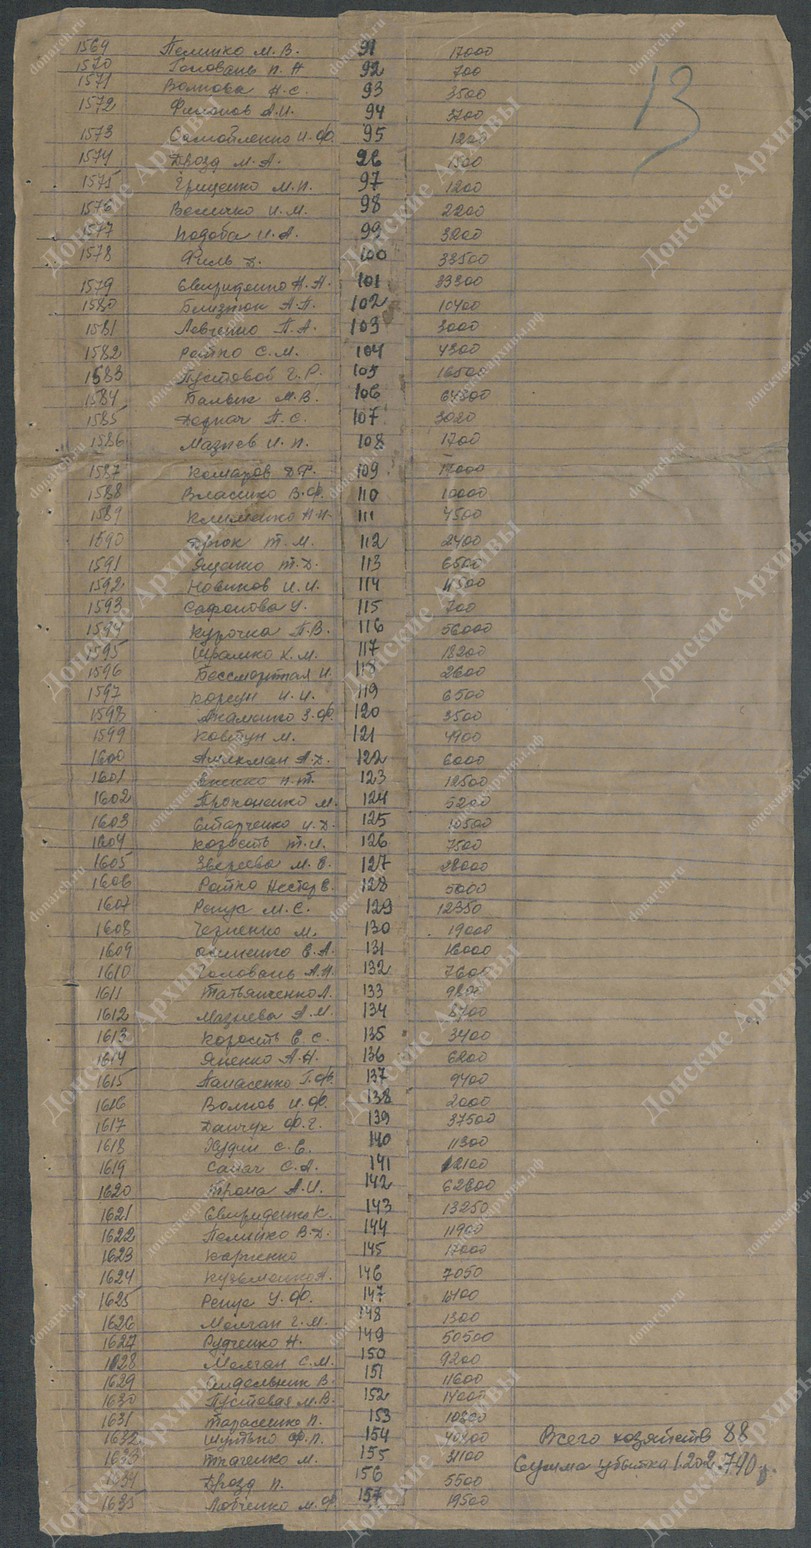 13
1564 Пелипко М. В. 91 17000
1570 Головань П. А 92 700
1571 Волкова Н. С. 93 3500
1572 Филонов А. И. 94 3700
1573 Самойленко И. Ф. 95 1200
1574 Дрозд М. А. 96 1500
1575 Гриценко М. П. 97 1200
1576 Величко И. М. 98 2200
1577 Кодоба И. А. 99 3200
1578 Филь Д. 100 33500
1579 Свириденко Н. А. 101 33300
1580 Близнюк А. П. 102 10400
1581 Левченко П. А. 103 3000
1582 Ратко С. М. 104 4300
1583 Пустовой Г. Р. 105 16500
1584 106 64300
1585 П. С. 107 3020
1586 Мазнев И. П. 108 1700
1587 Комаров Д. Ф. 109 17000
1588 Власенко В. Ф. 110 10000
1589 Клименко Н. И. 111 4500
1590 Т. М. 112 2400
1591 Яценко Т. Д. 113 6500
1592 Новиков И. И. 114 4500
1593 Сафонова У. 115 700
1594 Курочка П. В. 116 56000
1595 Шрамко К. М. 117 12200
1596 Бессмертная И. 118 2600
1597 Корсун И. И. 119 6500
1598 З. Ф. 120 3500
1599 Ковтун М. 121 4900
1600 А. Д. 122 6000
1601 П. Т. 123 12500
1602 Прокопенко М. 124 5200
1603 Старченко И. Д. 125 10500
1604 Корость Т. И. 126 7500
1605 Зверева М. Е. 127 28000
1606 Ратко Нестор Е. 128 5000
1607 Репух М. С. 129 12350
1608 Черненко М. 130 19000
1609 Е. А. 131 16000
1610 Головань А. Н. 132 7600
1611 Татьянченко А. 133
1612 Мазнева А. М. 134 5700
1613 Корость Е. С. 135 3400
1614 Яценко А. Н. 136 6200
1615 Панасенко Г. Ф. 137 9400
1616 Волков И. Ф. 138 2000
1617 Данчук Ф. Г. 139 37500
1618 Худин С. Е. 140 11300
1619 Сапач С. А. 141 12100
1620 А. И. 142 62800
1621 Свириденко К. 143 13250
1622 Пелипко В. Д. 144 11900
1623 Харченко 145 17000
1624 Кузьменко А. 146 7050
1625 Репух У. Ф. 147
1626 Молчан Г. М. 148 1300
1627 Рудченко Н. 149 50500
1628 Молчан С. М. 150 9200
1629 Сидельник В. 151 11600
1630 Пустовая М. В. 152 14000
1631 Тарасенко П. 153
1632 Шутько Ф. П. 154 40200
1633 Ткаченко М. 155 3100
1634 Дрозд П. 156 5500
1635 Ловченко М. Ф. 157 19500
Всего хозяйств 88
Сумма убытка 1.202.740 р.
Донские Архивы
donarch.ru
донскиеархивы.рф